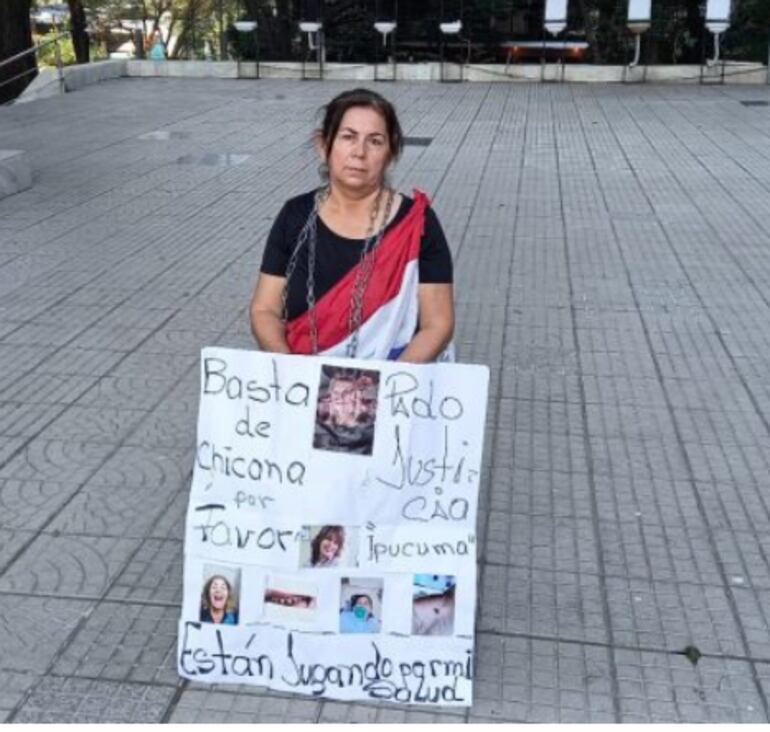 Basta
de
Chicana
por
Favor
Pido
Justi-
cia
"Ipucuma"
Están Jugando por mi
Salud